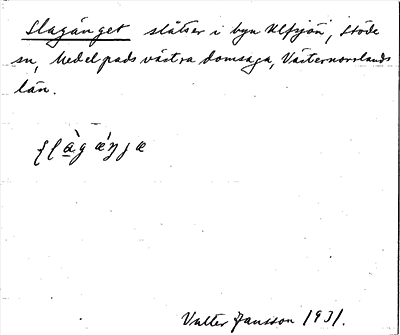 Slagänget slåtter i byn Ulfsjön, Stöde
sn, Medelpads västra domsaga, Västernorrlands
län.
Valter Jansson 1931.